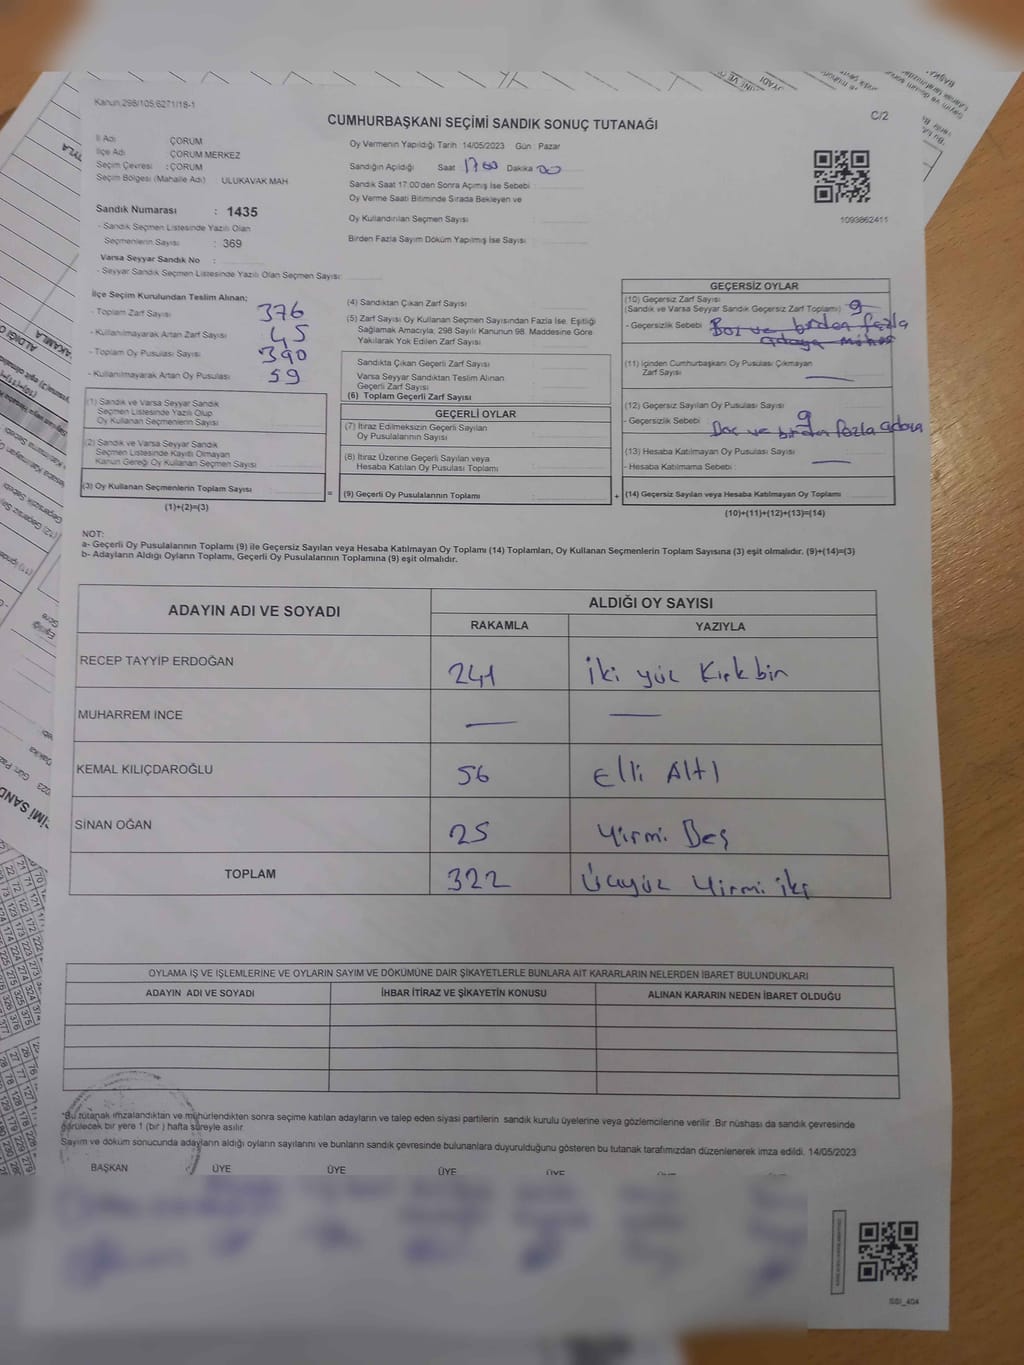 Kanun:298/105;6271/18-1
C/2
CUMHURBAŞKANI SEÇİMİ SANDIK SONUÇ TUTANAĞI
İl Adı : ÇORUM
İlçe Adı : ÇORUM MERKEZ
Seçim Çevresi : ÇORUM
Seçim Bölgesi (Mahalle Adı) : ULUKAVAK MAH
Sandık Numarası : 1435
- Sandık Seçmen Listesinde Yazılı Olan
Seçmenlerin Sayısı : 369
Varsa Seyyar Sandık No :
- Seyyar Sandık Seçmen Listesinde Yazılı Olan Seçmen Sayısı:
Oy Vermenin Yapıldığı Tarih 14/05/2023 Gün Pazar
Sandığın Açıldığı Saat 17:00 Dakika 00
Sandık Saat 17.00'den Sonra Açımış İse Sebebi
Oy Verme Saati Bitiminde Sırada Bekleyen ve
Oy Kullandırılan Seçmen Sayısı :
Birden Fazla Sayım Döküm Yapılmış İse Sayısı :
1093862411
İlçe Seçim Kurulundan Teslim Alınan;
- Toplam Zarf Sayısı : 376
- Kullanılmayarak Artan Zarf Sayısı : 45
- Toplam Oy Pusulası Sayısı : 390
- Kullanılmayarak Artan Oy Pusulası : 59
(1) Sandık ve Varsa Seyyar Sandık
Seçmen Listesinde Yazılı Olup
Oy Kullanan Seçmenlerin Sayısı :
(2) Sandık ve Varsa Seyyar Sandık
Seçmen Listesinde Kayıtlı Olmayan
Kanun Gereği Oy Kullanan Seçmen Sayısı :
(3) Oy Kullanan Seçmenlerin Toplam Sayısı :
(1)+(2)=(3)
(4) Sandıktan Çıkan Zarf Sayısı :
(5) Zarf Sayısı Oy Kullanan Seçmen Sayısından Fazla İse, Eşitliği
Sağlamak Amacıyla; 298 Sayılı Kanunun 98. Maddesine Göre
Yakılarak Yok Edilen Zarf Sayısı :
Sandıkta Çıkan Geçerli Zarf Sayısı :
Varsa Seyyar Sandıktan Teslim Alınan
Geçerli Zarf Sayısı :
(6) Toplam Geçerli Zarf Sayısı :
GEÇERLİ OYLAR
(7) İtiraz Edilmeksizin Geçerli Sayılan
Oy Pusulasının Sayısı :
(8) İtiraz Üzerine Geçerli Sayılan veya
Hesaba Katılan Oy Pusulası Toplamı :
= (9) Geçerli Oy Pusulalarının Toplamı :
GEÇERSİZ OYLAR
(10) Geçersiz Zarf Sayısı
(Sandık ve Varsa Seyyar Sandık Geçersiz Zarf Toplamı) : 9
- Geçersizlik Sebebi : Boş ve birden fazla
adaya mühür
(11) İçinden Cumhurbaşkanı Oy Pusulası Çıkmayan
Zarf Sayısı : —
(12) Geçersiz Sayılan Oy Pusulası Sayısı : 9
- Geçersizlik Sebebi : Boş ve birden fazla adaya
(13) Hesaba Katılmayan Oy Pusulası Sayısı : —
- Hesaba Katılmama Sebebi :
+ (14) Geçersiz Sayılan veya Hesaba Katılmayan Oy Toplamı :
(10)+(11)+(12)+(13)=(14)
NOT:
a- Geçerli Oy Pusulalarının Toplamı (9) ile Geçersiz Sayılan veya Hesaba Katılmayan Oy Toplamı (14) Toplamları, Oy Kullanan Seçmenlerin Toplam Sayısına (3) eşit olmalıdır. (9)+(14)=(3)
b- Adayların Aldığı Oyların Toplamı, Geçerli Oy Pusulalarının Toplamına (9) eşit olmalıdır.
ADAYIN ADI VE SOYADI ALDIĞI OY SAYISI
RAKAMLA YAZIYLA
RECEP TAYYİP ERDOĞAN 241 İki yüz Kırkbir
MUHARREM İNCE — —
KEMAL KILIÇDAROĞLU 56 Elli Altı
SİNAN OĞAN 25 Yirmi Beş
TOPLAM 322 Üçyüz Yirmi iki
OYLAMA İŞ VE İŞLEMLERİNE VE OYLARIN SAYIM VE DÖKÜMÜNE DAİR ŞİKAYETLERLE BUNLARA AİT KARARLARIN NELERDEN İBARET BULUNDUKLARI
ADAYIN ADI VE SOYADI İHBAR İTİRAZ VE ŞİKAYETİN KONUSU ALINAN KARARIN NEDEN İBARET OLDUĞU
*Bu tutanak imzalandıktan ve mühürlendikten sonra seçime katılan adayların ve talep eden siyasi partilerin sandık kurulu üyelerine veya gözlemcilerine verilir. Bir nüshası da sandık çevresinde
görülecek bir yere 1 (bir ) hafta süreyle asılır.
Sayım ve döküm sonucunda adayların aldığı oyların sayılarını ve bunların sandık çevresinde bulunanlara duyurulduğunu gösteren bu tutanak tarafımızdan düzenlenerek imza edildi. 14/05/2023
BAŞKAN ÜYE ÜYE ÜYE ÜYE ÜYE